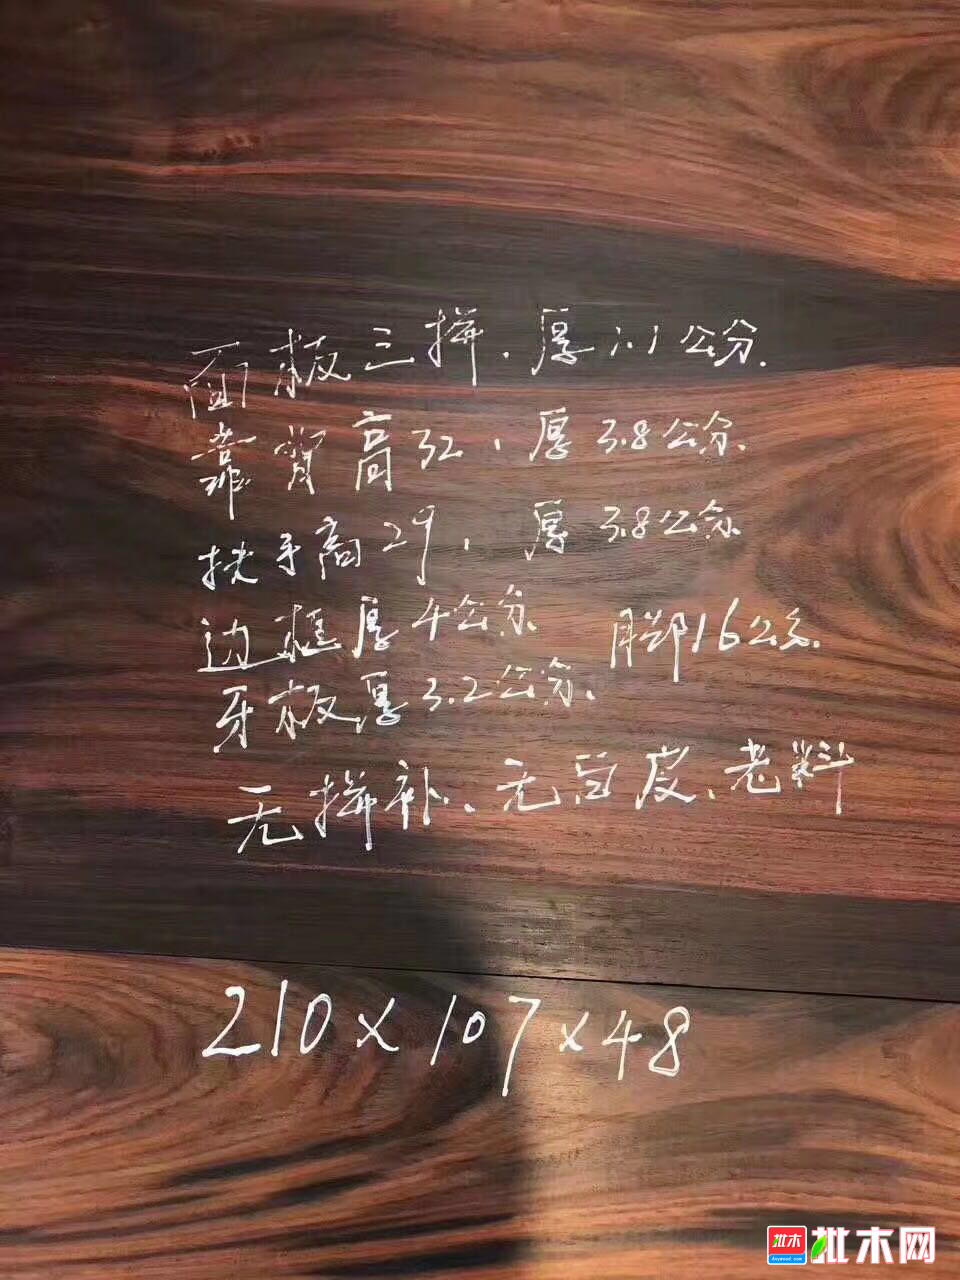 面板三拼.厚1.1公分.
靠背高32,厚3.8公分.
扶手高29,厚3.8公分.
边框厚4公分 脚16公分.
牙板厚3.2公分、
无拼补、无白皮、老料
210×107×48
批木 批木网
Anywood.com